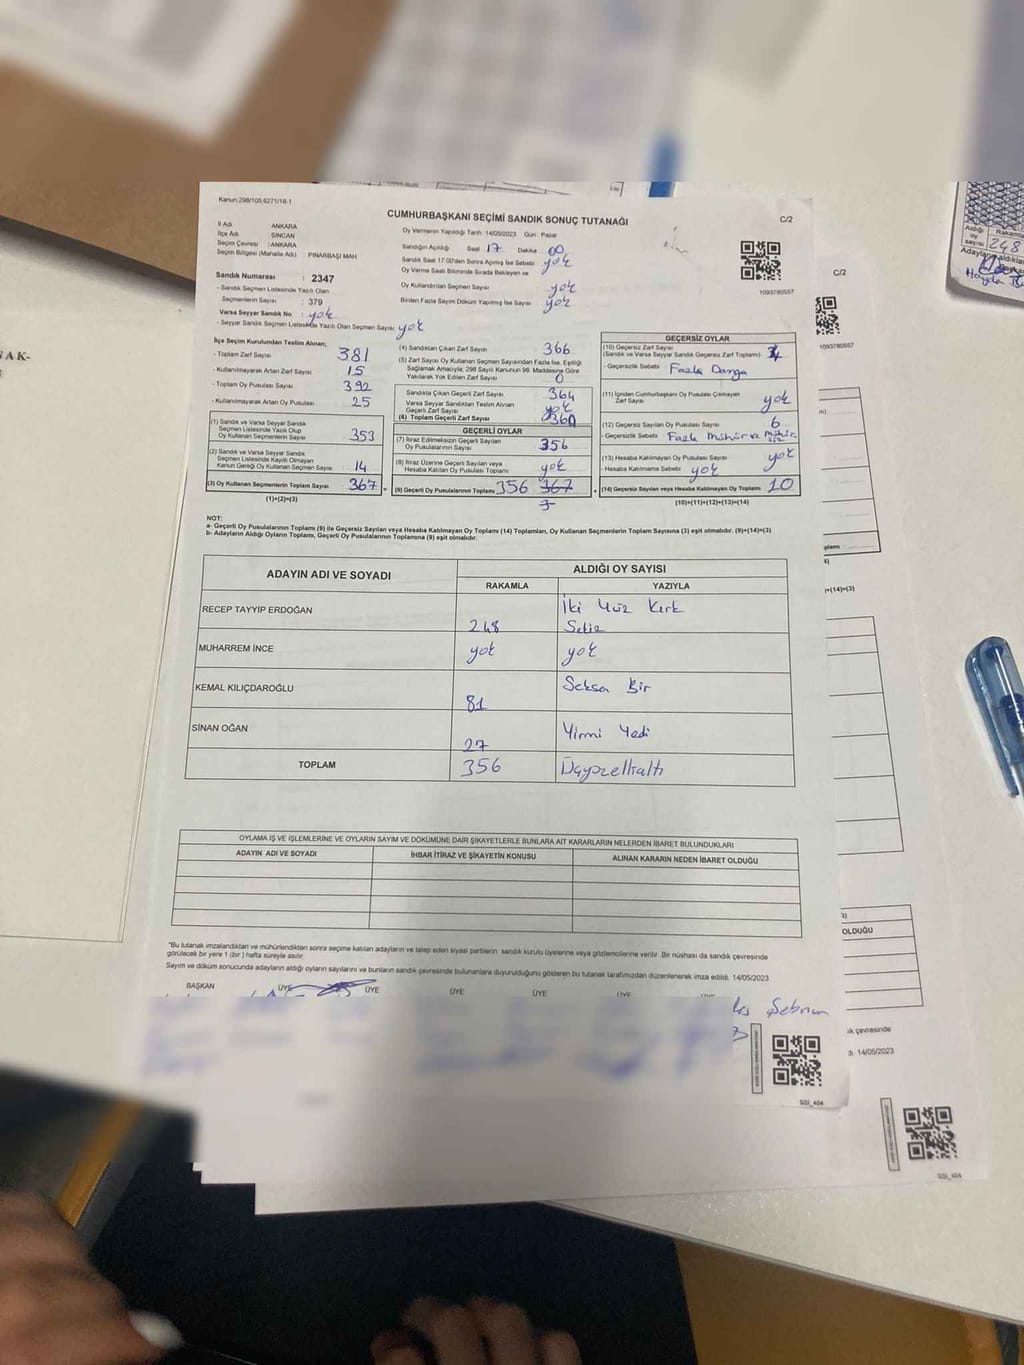 Kanun:298/105;6271/18-1
CUMHURBAŞKANI SEÇİMİ SANDIK SONUÇ TUTANAĞI
C/2
İl Adı : ANKARA
İlçe Adı : SİNCAN
Seçim Çevresi : ANKARA
Seçim Bölgesi (Mahalle Adı) : PINARBAŞI MAH
Oy Vermenin Yapıldığı Tarih: 14/05/2023 Gün : Pazar
Sandığın Açıldığı Saat 17 Dakika 00
Sandık Saat 17:00'den Sonra Açılmış İse Sebebi yok
Oy Verme Saati Bitiminde Sırada Bekleyen ve
Oy Kullandırılan Seçmen Sayısı yok
Birden Fazla Sayım Döküm Yapılmış İse Sayısı yok
1093780557
Sandık Numarası : 2347
- Sandık Seçmen Listesinde Yazılı Olan
Seçmenlerin Sayısı : 379
Varsa Seyyar Sandık No : yok
- Seyyar Sandık Seçmen Listesinde Yazılı Olan Seçmen Sayısı: yok
İlçe Seçim Kurulundan Teslim Alınan;
- Toplam Zarf Sayısı 381
- Kullanılmayarak Artan Zarf Sayısı 15
- Toplam Oy Pusulası Sayısı 392
- Kullanılmayarak Artan Oy Pusulası 25
(1) Sandık ve Varsa Seyyar Sandık
Seçmen Listesinde Yazılı Olup
Oy Kullanan Seçmenlerin Sayısı 353
(2) Sandık ve Varsa Seyyar Sandık
Seçmen Listesinde Kayıtlı Olmayan
Kanun Gereği Oy Kullanan Seçmen Sayısı 14
(3) Oy Kullanan Seçmenlerin Toplam Sayısı 367
(1)+(2)=(3)
(4) Sandıktan Çıkan Zarf Sayısı 366
(5) Zarf Sayısı Oy Kullanan Seçmen Sayısından Fazla İse, Eşitliği
Sağlamak Amacıyla; 298 Sayılı Kanunun 98. Maddesine Göre
Yakılarak Yok Edilen Zarf Sayısı 0
Sandıkta Çıkan Geçerli Zarf Sayısı 364
Varsa Seyyar Sandıktan Teslim Alınan
Geçerli Zarf Sayısı yok
(6) Toplam Geçerli Zarf Sayısı
GEÇERLİ OYLAR
(7) İtiraz Edilmeksizin Geçerli Sayılan
Oy Pusulalarının Sayısı 356
(8) İtiraz Üzerine Geçerli Sayılan veya
Hesaba Katılan Oy Pusulası Toplamı yok
(9) Geçerli Oy Pusulalarının Toplamı 356 367
GEÇERSİZ OYLAR
(10) Geçersiz Zarf Sayısı
(Sandık ve Varsa Seyyar Sandık Geçersiz Zarf Toplamı)
- Geçersizlik Sebebi : Fazla Damga
(11) İçinden Cumhurbaşkanı Oy Pusulası Çıkmayan
Zarf Sayısı yok
(12) Geçersiz Sayılan Oy Pusulası Sayısı 6
- Geçersizlik Sebebi : Fazla Mühür ve
(13) Hesaba Katılmayan Oy Pusulası Sayısı yok
- Hesaba Katılmama Sebebi : yok
(14) Geçersiz Sayılan veya Hesaba Katılmayan Oy Toplamı 10
(10)+(11)+(12)+(13)=(14)
NOT:
a- Geçerli Oy Pusulalarının Toplamı (9) ile Geçersiz Sayılan veya Hesaba Katılmayan Oy Toplamı (14) Toplamları, Oy Kullanan Seçmenlerin Toplam Sayısına (3) eşit olmalıdır. (9)+(14)=(3)
b- Adayların Aldığı Oyların Toplamı, Geçerli Oy Pusulalarının Toplamına (9) eşit olmalıdır.
ADAYIN ADI VE SOYADI
ALDIĞI OY SAYISI
RAKAMLA YAZIYLA
RECEP TAYYİP ERDOĞAN 248 İki Yüz Kırk
Sekiz
MUHARREM İNCE yok yok
KEMAL KILIÇDAROĞLU 81 Seksen Bir
SİNAN OĞAN 27 Yirmi Yedi
TOPLAM 356 Üçyüzellialtı
OYLAMA İŞ VE İŞLEMLERİNE VE OYLARIN SAYIM VE DÖKÜMÜNE DAİR ŞİKAYETLERLE BUNLARA AİT KARARLARIN NELERDEN İBARET BULUNDUKLARI
ADAYIN ADI VE SOYADI İHBAR İTİRAZ VE ŞİKAYETİN KONUSU ALINAN KARARIN NEDEN İBARET OLDUĞU
*Bu tutanak imzalandıktan ve mühürlendikten sonra seçime katılan adayların ve talep eden siyasi partilerin sandık kurulu üyelerine veya gözlemcilerine verilir. Bir nüshası da sandık çevresinde
görülecek bir yere 1 (bir ) hafta süreyle asılır.
Sayım ve döküm sonucunda adayların aldığı oyların sayılarını ve bunların sandık çevresinde bulunanlara duyurulduğunu gösteren bu tutanak tarafımızdan düzenlenerek imza edildi. 14/05/2023
BAŞKAN ÜYE ÜYE ÜYE ÜYE ÜYE
Şebnem
SSI_404
C/2
1093780557
)+(14)=(3)
OLDUĞU
ık çevresinde
14/05/2023
SSI_404
Aldığı
oy
sayısı
Rakamla
248